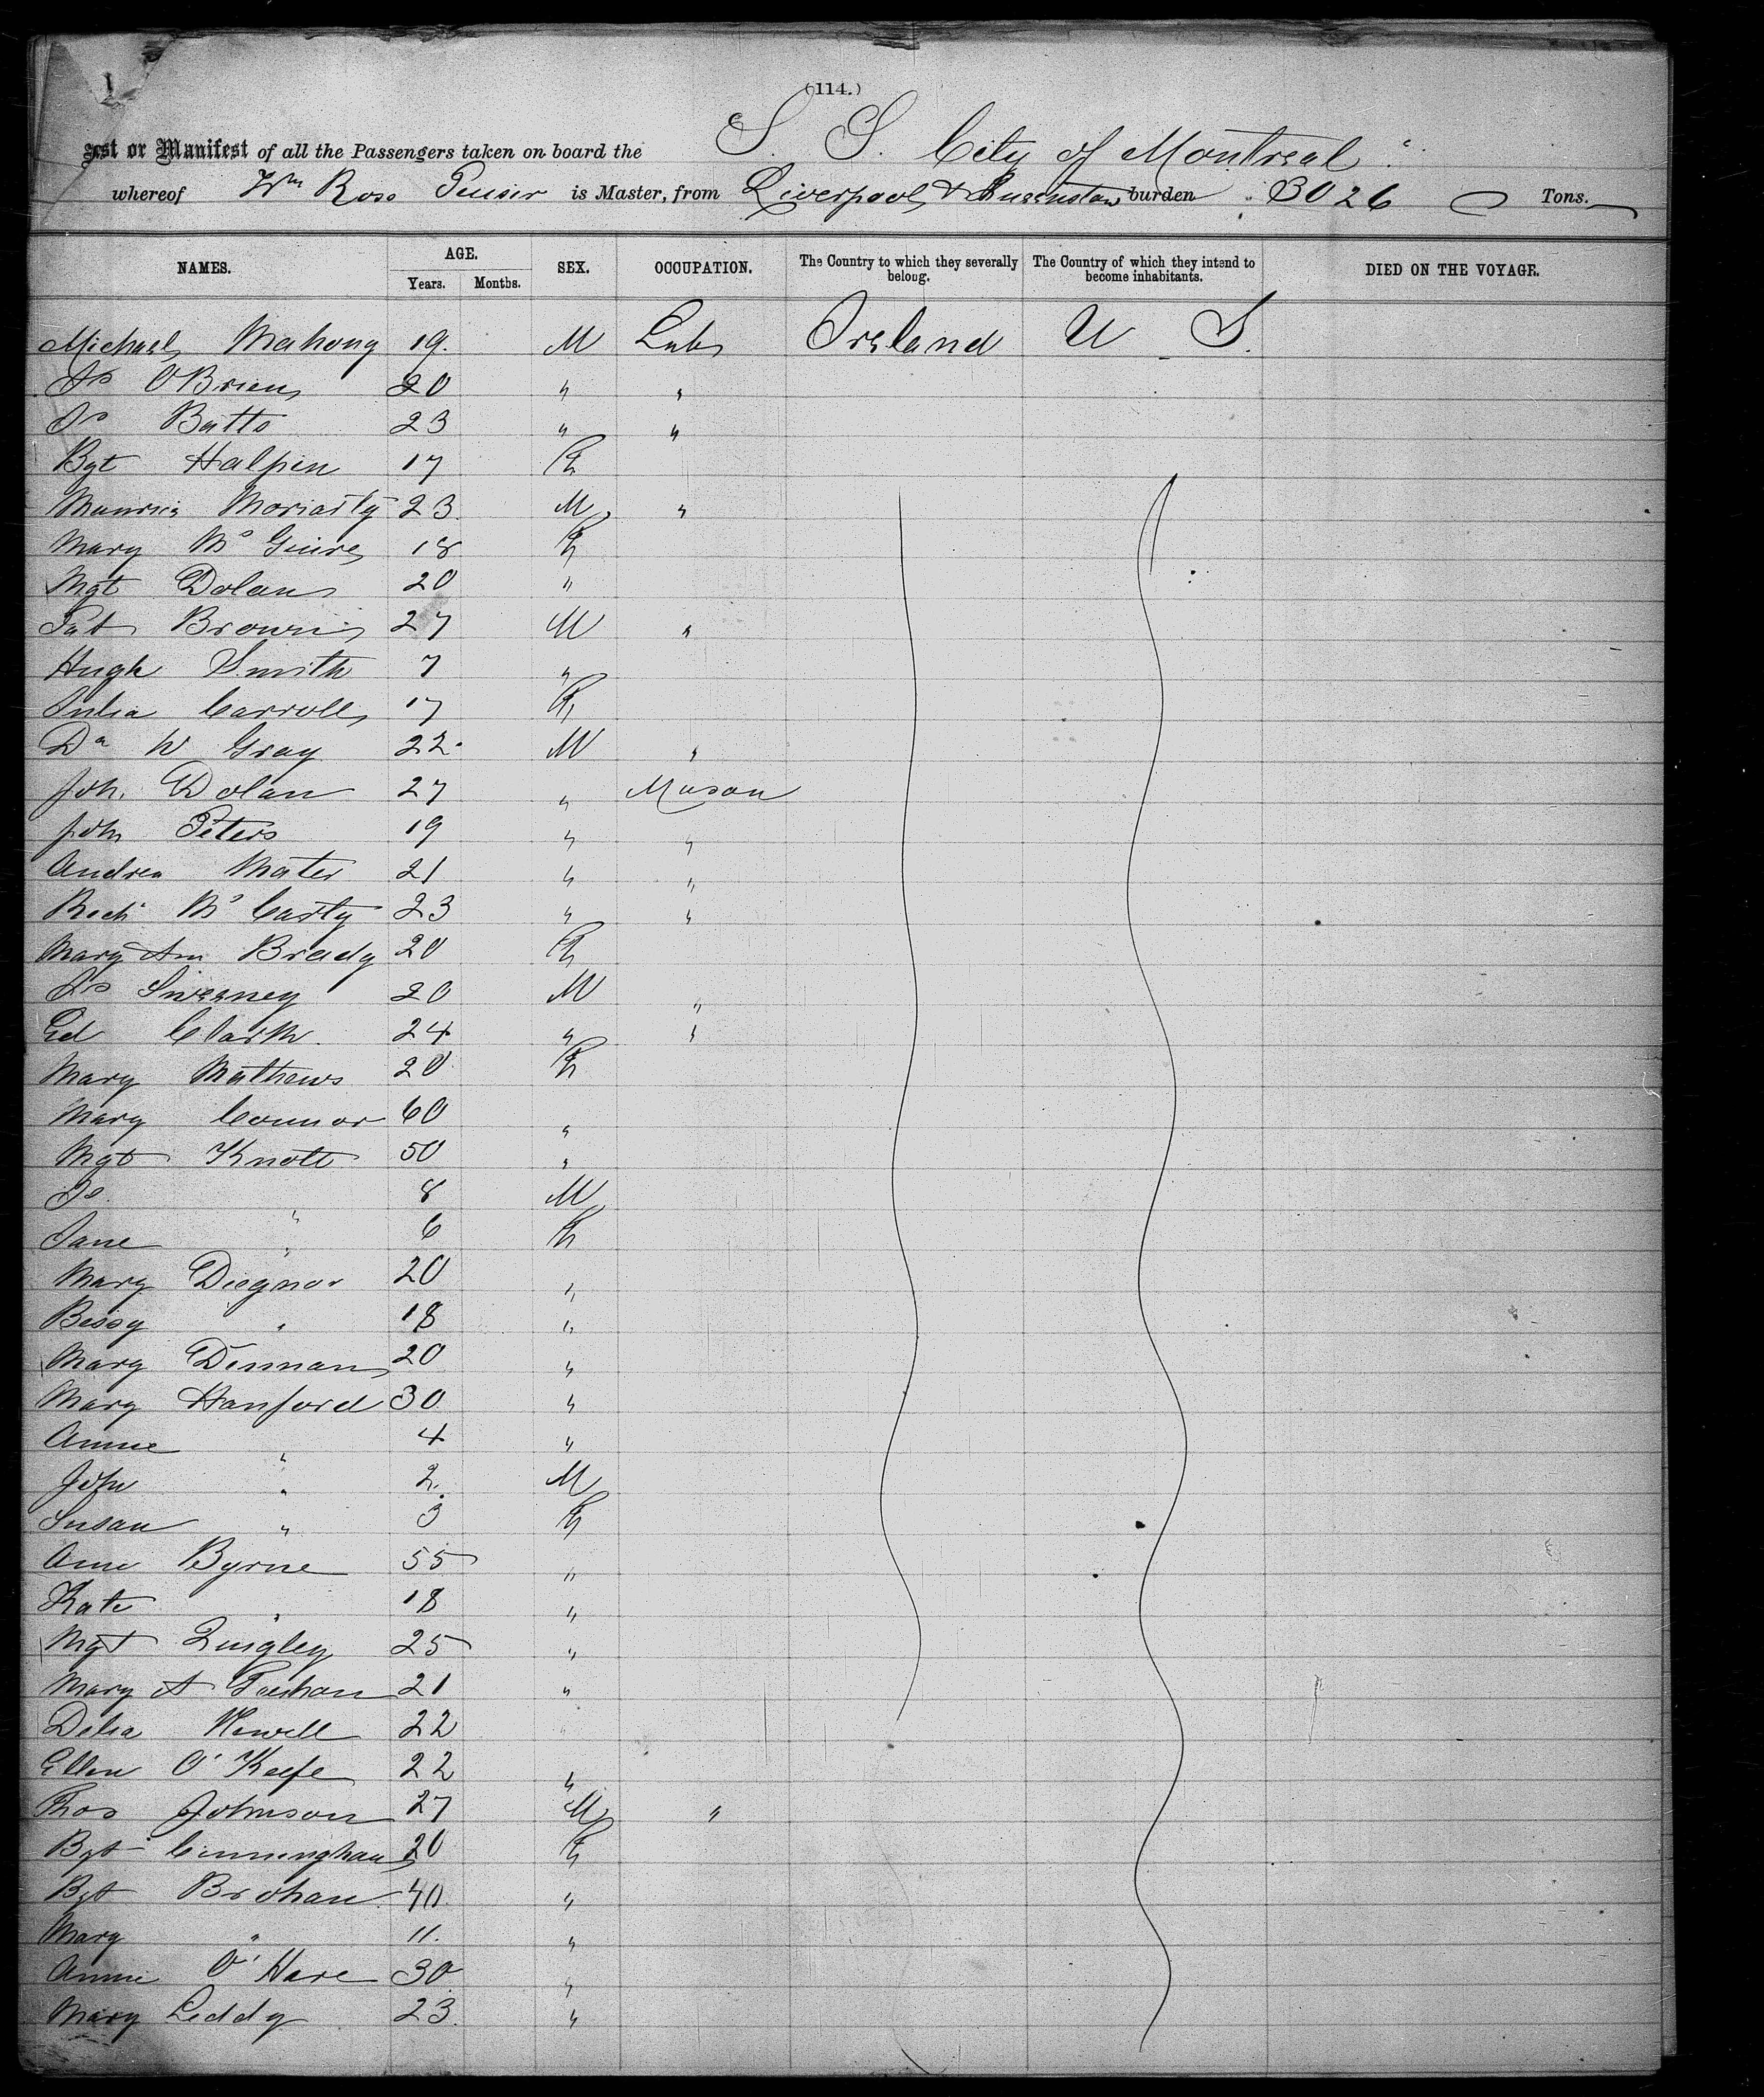 (114.)
List or Manifest of all the Passengers taken on board the S. S. City of Montreal
whereof Wm Ross is Master, from Liverpool & Queenstown burden 3026 Tons.
NAMES. AGE. Years. Months. SEX. OCCUPATION. The Country to which they severally belong. The Country of which they intend to become inhabitants. DIED ON THE VOYAGE.
Michael Mahony 19. M Lab Ireland U S.
Js O'Brien 20 " "
Js Batts 23 " "
Bgt Halpin 17 F
Maurice Moriarty 23 M "
Mary McGuire 18 F
Mgt Dolan 20 "
Pat Brown 27 M "
Hugh Smith 7 "
Julia Carroll 17 F
W Gray 22 M "
Joh. Dolan 27 " Mason
John Peters 19 " "
Andrew Mater 21 " "
Richd McCarty 23 " "
Mary Ann Brady 20 F
Js Sweeney 20 M "
Ed Clark 24 " "
Mary Mathews 20 F
Mary Connor 60 "
Mgt Knott 50 "
Js " 8 M
Jane " 6 F
Mary Diegnor 20 "
Bessy " 18 "
Mary Dennan 20 "
Mary Hanford 30 "
Annie " 4 "
John " 2 M
Susan " 3 F
Ann Byrne 55 "
Kate " 18 "
Mgt Quigley 25 "
Mary A 21 "
Delia Newell 22 "
Ellen O'Keefe 22 "
Thos Johnson 27 M "
Bgt Cunningham 20 F
Bgt Brohan 40 "
Mary " 11. "
Annie O'Hare 30 "
Mary Leddy 23 "